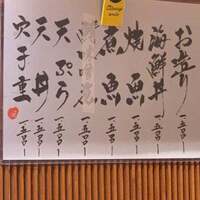 お造り 一五〇〇ー
海鮮丼 一五〇〇ー
焼魚 一五〇〇ー
煮魚 一五〇〇ー
天ぷら 一五〇〇ー
天丼 一五〇〇ー
穴子重 一五〇〇ー